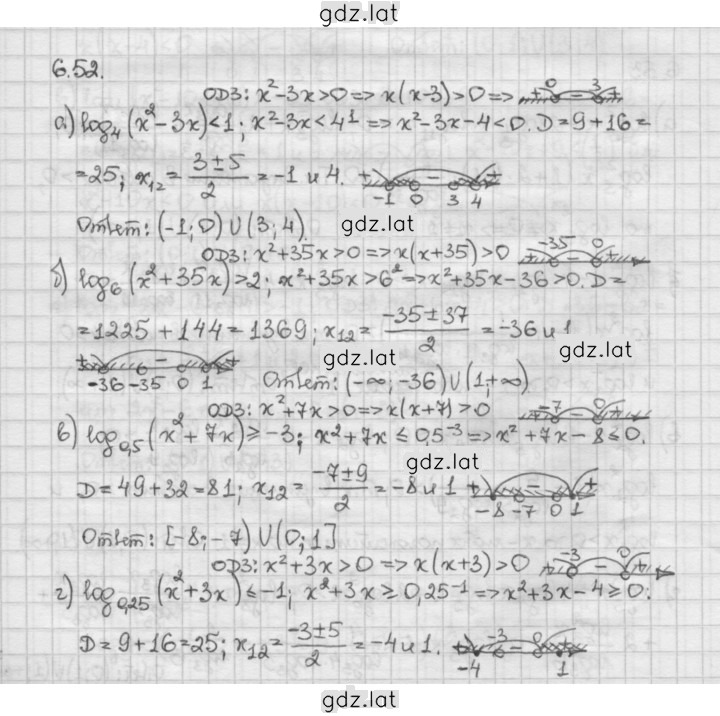 gdz.lat
6.52.
ОДЗ: x²-3x>0 => x(x-3)>0 => + 0 - 3 +
а) log₄(x²-3x)<1; x²-3x<4¹ => x²-3x-4<0. D=9+16=
=25; x₁₂= (3±5)/2 = -1 и 4. + - + -1 0 3 4
Ответ: (-1; 0) ∪ (3; 4).
gdz.lat
ОДЗ: x²+35x>0 => x(x+35)>0 -35 0
б) log₆(x²+35x)>2; x²+35x>6² => x²+35x-36>0. D=
=1225+144=1369; x₁₂= (-35±37)/2 = -36 и 1
gdz.lat
gdz.lat
-36 -35 0 1 Ответ: (-∞; -36) ∪ (1; +∞)
ОДЗ: x²+7x>0 => x(x+7)>0 -7 0
в) log₀,₅(x²+7x)≥-3; x²+7x≤0,5⁻³ => x²+7x-8≤0.
gdz.lat
D=49+32=81; x₁₂= (-7±9)/2 = -8 и 1 + - + -8 -7 0 1
Ответ: [-8; -7) ∪ (0; 1]
ОДЗ: x²+3x>0 => x(x+3)>0 -3 0
г) log₀,₂₅(x²+3x)≤-1; x²+3x≥0,25⁻¹ => x²+3x-4≥0.
D=9+16=25; x₁₂= (-3±5)/2 = -4 и 1. -4 -3 0 1
gdz.lat